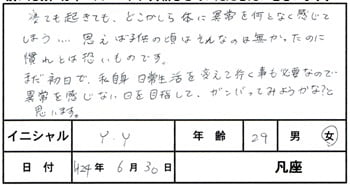 寝ても起きても、どこかしら体に異常を何となく感じて
しまう…。思えば子供の頃はそんなのは無かったのに
慣れとは恐いものです。
まだ初日で、私自身日常生活を変えて行く事も必要なので
異常を感じない日を目指して、ガンバってみようかな?と
思います。
イニシャル Y.Y 年齢 29 男 女
日付 H24年 6月 30日 凡座